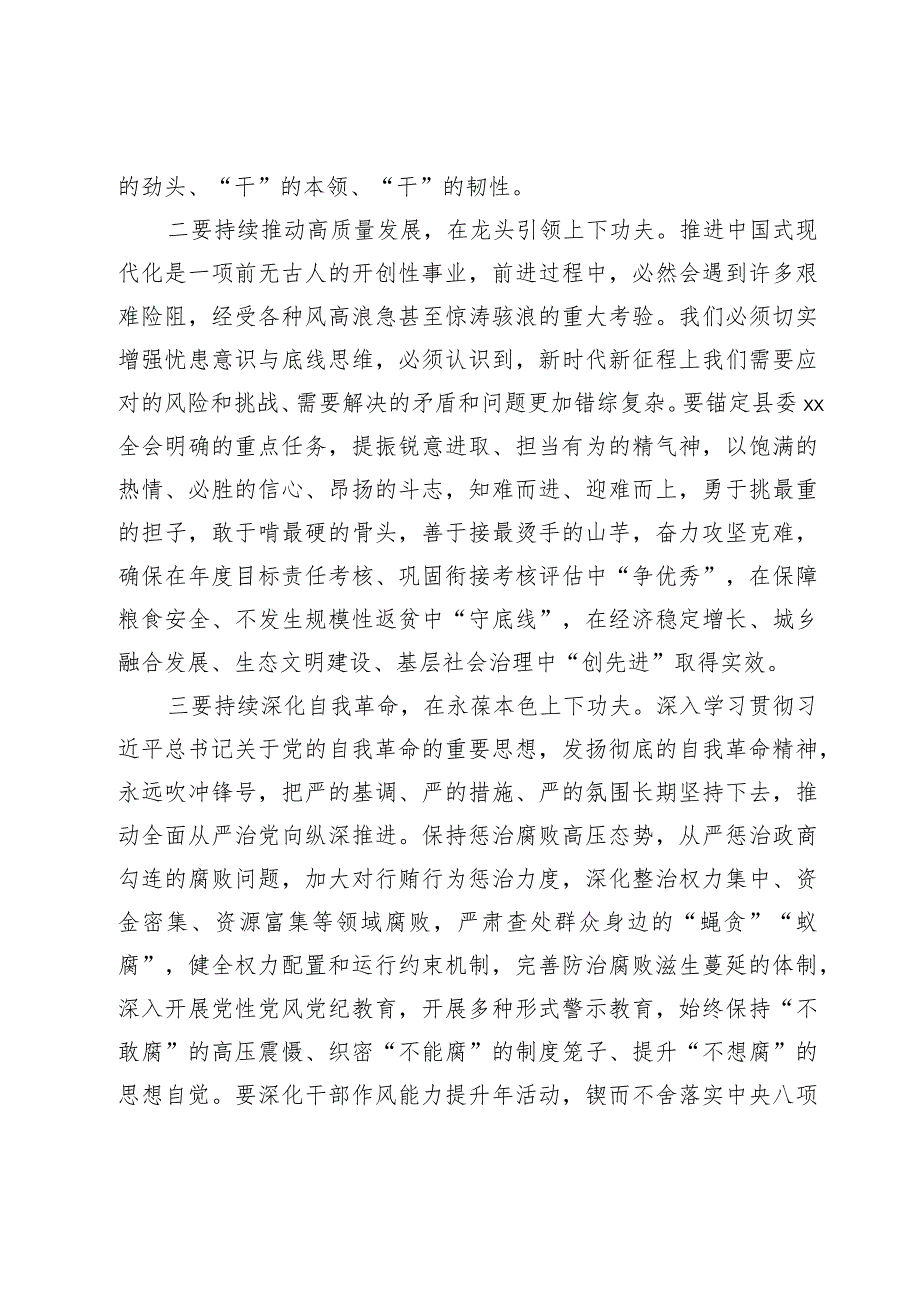 的劲头、“干”的本领、“干”的韧性。
二要持续推动高质量发展，在龙头引领上下功夫。推进中国式现
代化是一项前无古人的开创性事业，前进过程中，必然会遇到许多艰
难险阻，经受各种风高浪急甚至惊涛骇浪的重大考验。我们必须切实
增强忧患意识与底线思维，必须认识到，新时代新征程上我们需要应
对的风险和挑战、需要解决的矛盾和问题更加错综复杂。要锚定县委 xx
全会明确的重点任务，提振锐意进取、担当有为的精气神，以饱满的
热情、必胜的信心、昂扬的斗志，知难而进、迎难而上，勇于挑最重
的担子，敢于啃最硬的骨头，善于接最烫手的山芋，奋力攻坚克难，
确保在年度目标责任考核、巩固衔接考核评估中“争优秀”，在保障
粮食安全、不发生规模性返贫中“守底线”，在经济稳定增长、城乡
融合发展、生态文明建设、基层社会治理中“创先进”取得实效。
三要持续深化自我革命，在永葆本色上下功夫。深入学习贯彻习
近平总书记关于党的自我革命的重要思想，发扬彻底的自我革命精神，
永远吹冲锋号，把严的基调、严的措施、严的氛围长期坚持下去，推
动全面从严治党向纵深推进。保持惩治腐败高压态势，从严惩治政商
勾连的腐败问题，加大对行贿行为惩治力度，深化整治权力集中、资
金密集、资源富集等领域腐败，严肃查处群众身边的“蝇贪”“蚁
腐”，健全权力配置和运行约束机制，完善防治腐败滋生蔓延的体制，
深入开展党性党风党纪教育，开展多种形式警示教育，始终保持“不
敢腐”的高压震慑、织密“不能腐”的制度笼子、提升“不想腐”的
思想自觉。要深化干部作风能力提升年活动，锲而不舍落实中央八项